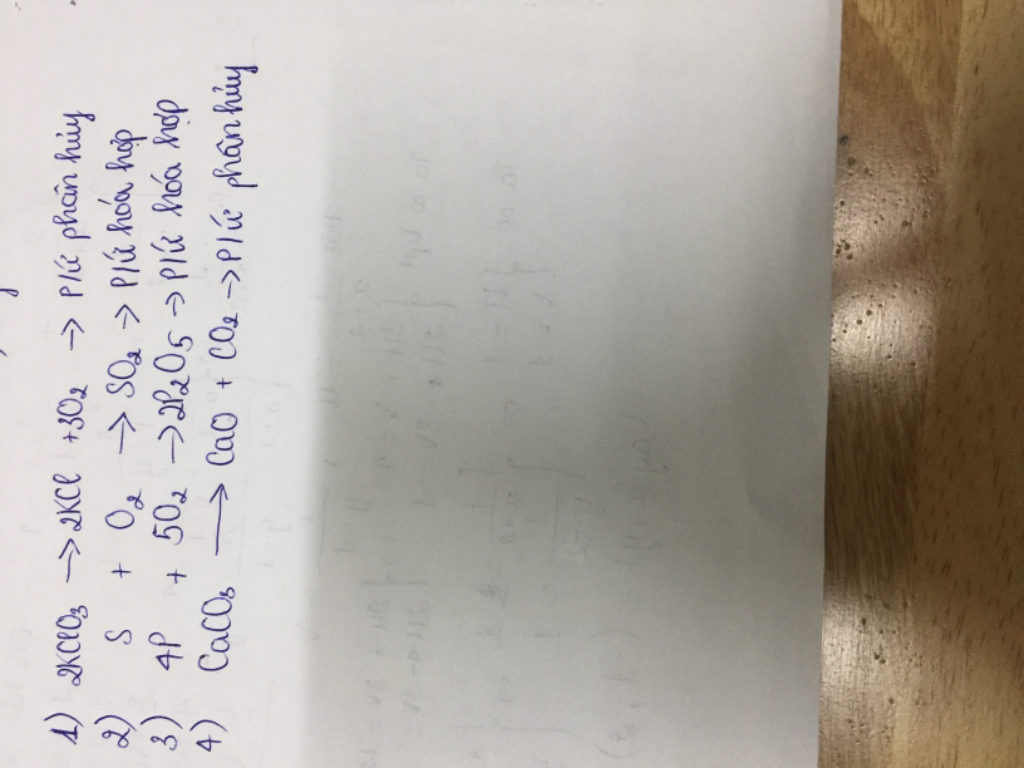 1) 2KClO₃ → 2KCl + 3O₂ → P/ứ phân hủy
2) S + O₂ → SO₂ → P/ứ hóa hợp
3) 4P + 5O₂ → 2P₂O₅ → P/ứ hóa hợp
4) CaCO₃ → CaO + CO₂ → P/ứ phân hủy